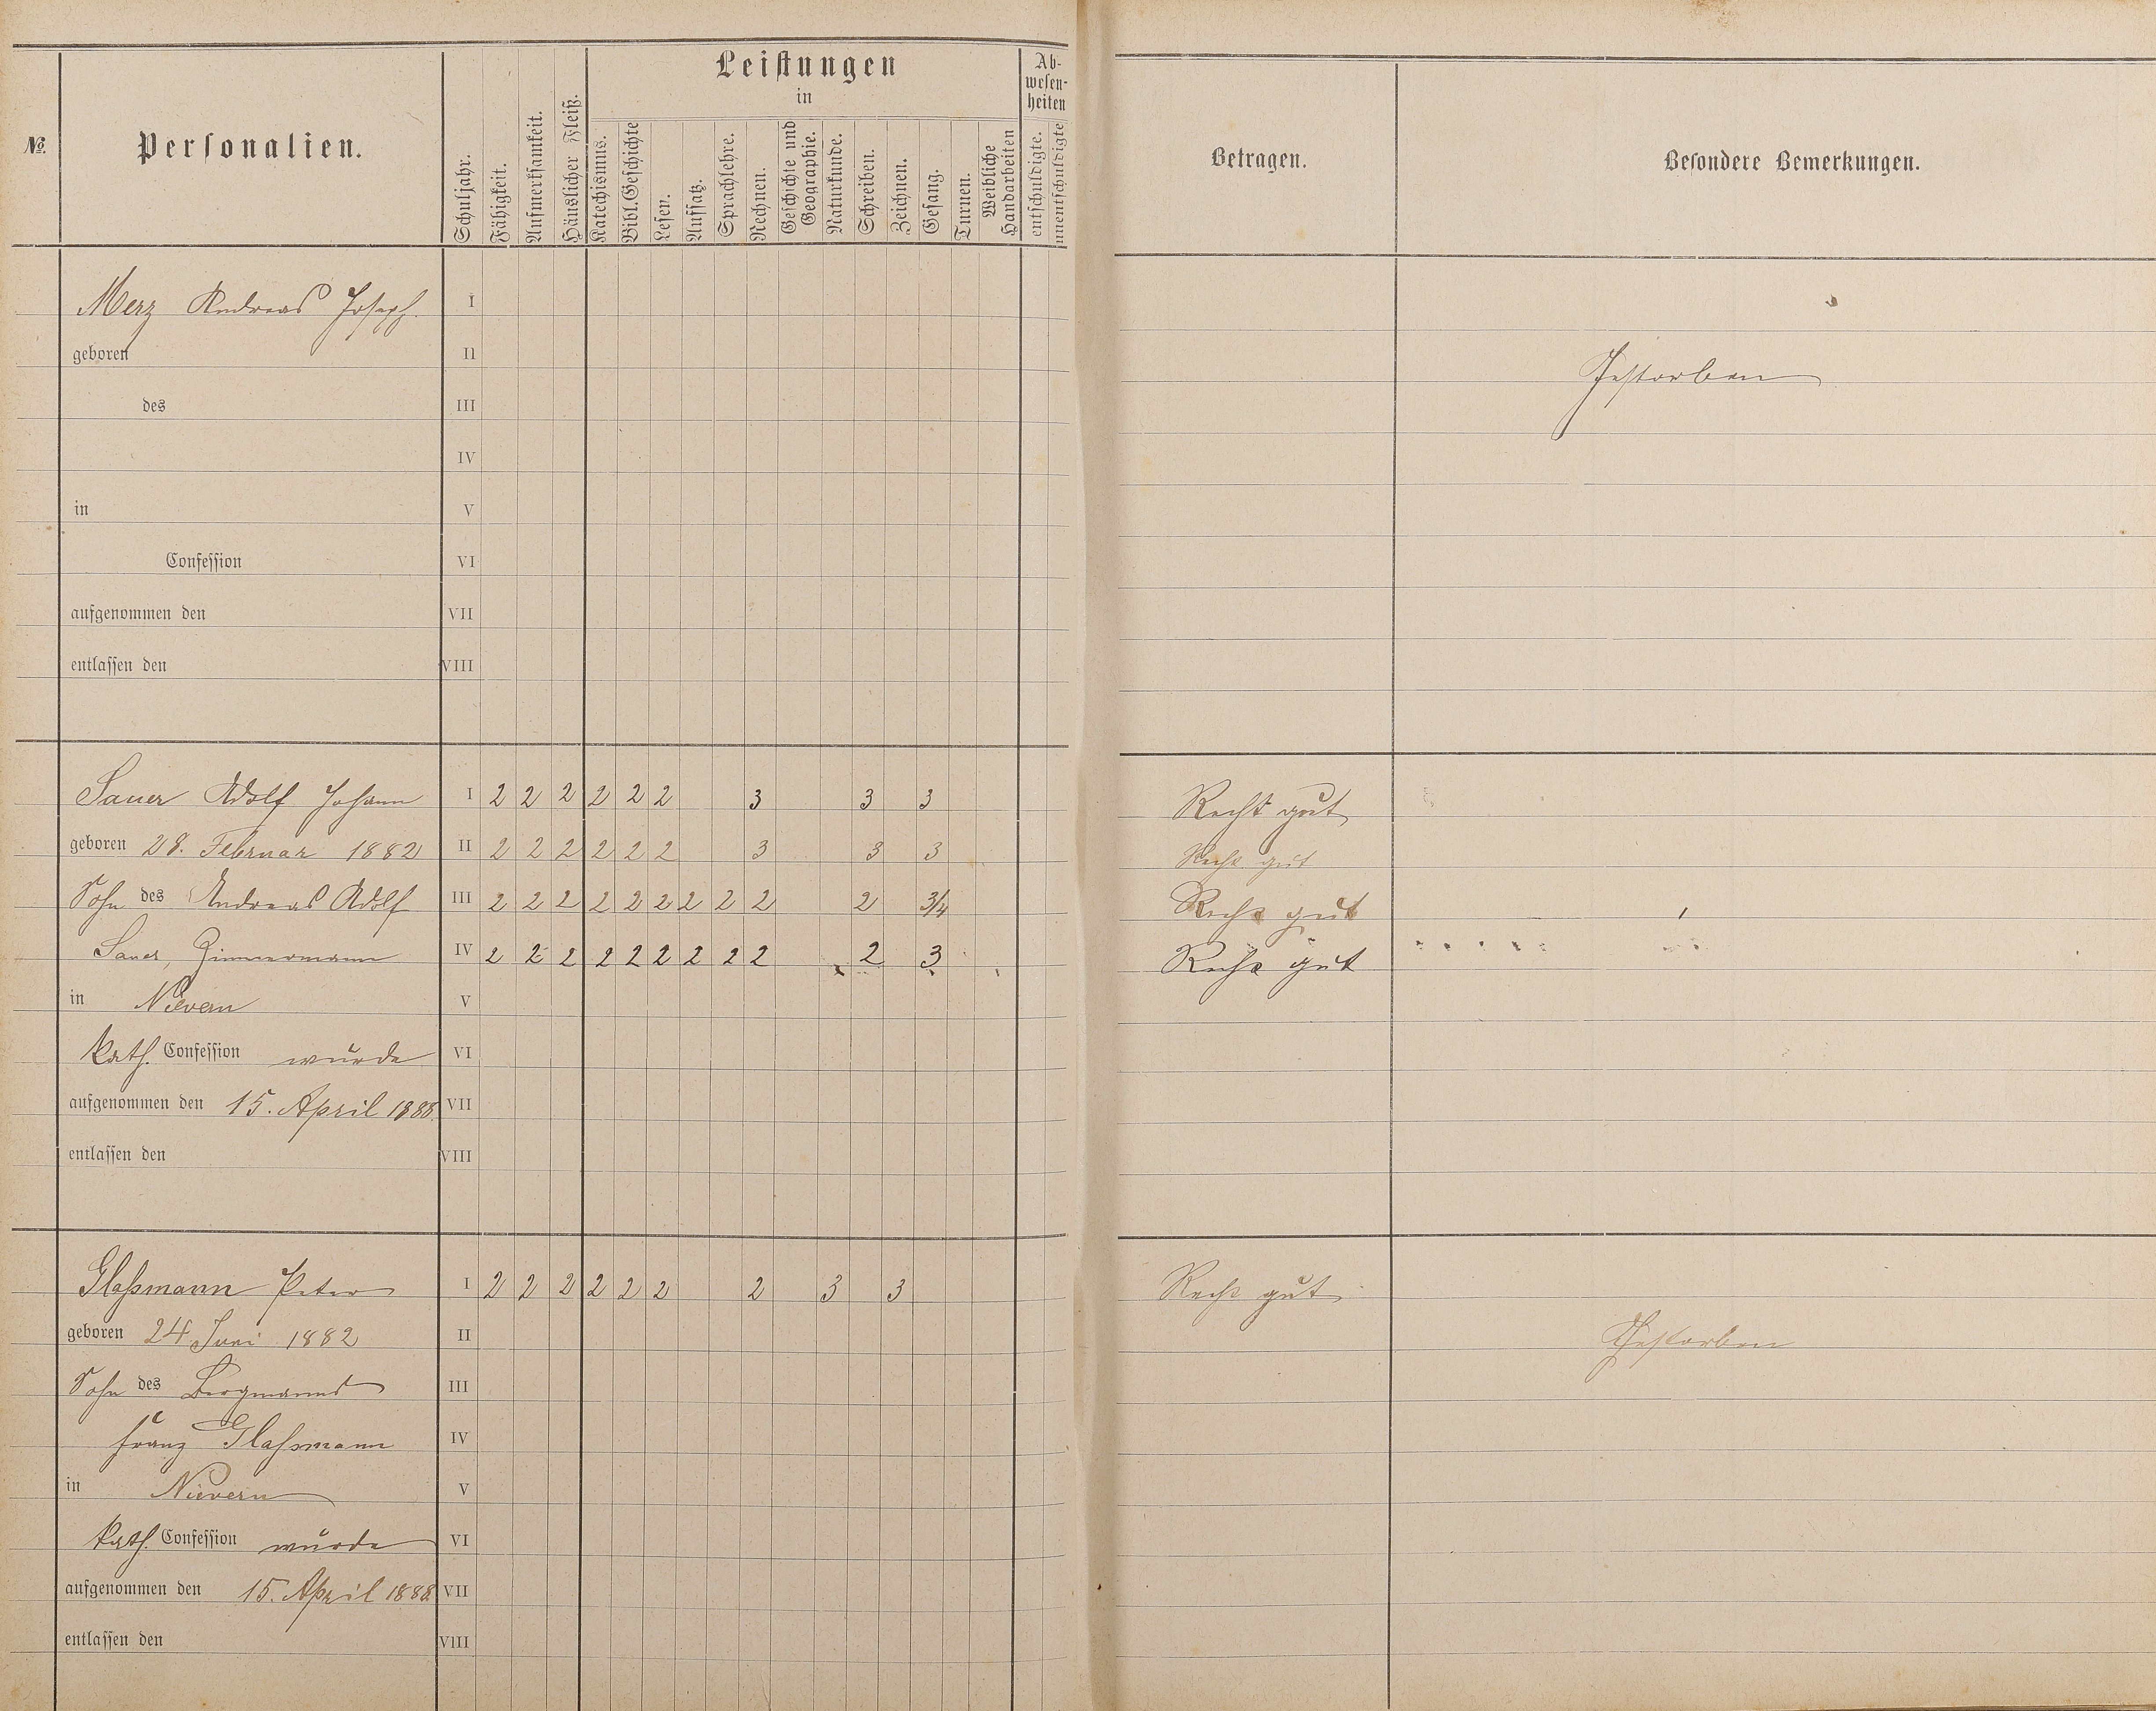 №. Personalien. Schuljahr. Fähigkeit. Aufmerksamkeit. Häuslicher Fleiß. Leistungen in Katechismus. Bibl. Geschichte Lesen. Aufsatz. Sprachlehre. Rechnen. Geschichte und Geographie. Naturkunde. Schreiben. Zeichnen. Gesang. Turnen. Weibliche Handarbeiten Abwesenheiten entschuldigte. unentschuldigte Betragen. Besondere Bemerkungen.
Merz Andreas Joseph. I
geboren II Gestorben
des III
IV
in V
Confession VI
aufgenommen den VII
entlassen den VIII
Sauer Adolf Johann I 2 2 2 2 2 2 3 3 3 Recht gut
geboren 28. Februar 1882 II 2 2 2 2 2 2 3 3 3 Recht gut
Sohn des Andreas Adolf III 2 2 2 2 2 2 2 2 2 2 3/4 Recht gut
Sauer, Zimmermann IV 2 2 2 2 2 2 2 2 2 2 3 Recht gut
in Nievern V
kath. Confession wurde VI
aufgenommen den 15. April 1888. VII
entlassen den VIII
Glaßmann Peter I 2 2 2 2 2 2 2 3 3 Recht gut
geboren 24 Juni 1882 II Gestorben
Sohn des Bergmanns III
Franz Glaßmann IV
in Nievern V
kath. Confession wurde VI
aufgenommen den 15. April 1888. VII
entlassen den VIII